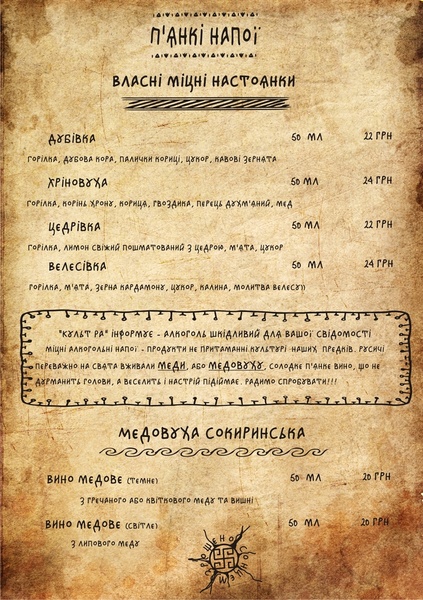 П'ЯНКІ НАПОЇ
ВЛАСНІ МІЦНІ НАСТОЯНКИ
ДУБІВКА 50 МЛ 22 ГРН
ГОРІЛКА, ДУБОВА КОРА, ПАЛИЧКИ КОРИЦІ, ЦУКОР, КАВОВІ ЗЕРНЯТА
ХРІНОВУХА 50 МЛ 24 ГРН
ГОРІЛКА, КОРІНЬ ХРОНУ, КОРИЦЯ, ГВОЗДИКА, ПЕРЕЦЬ ДУХМ'ЯНИЙ, МЕД
ЦЕДРІВКА 50 МЛ 22 ГРН
ГОРІЛКА, ЛИМОН СВІЖИЙ ПОШМАТОВАНИЙ З ЦЕДРОЮ, М'ЯТА, ЦУКОР
ВЕЛЕСІВКА 50 МЛ 24 ГРН
ГОРІЛКА, М'ЯТА, ЗЕРНА КАРДАМОНУ, ЦУКОР, КАЛИНА, МОЛИТВА ВЕЛЕСУ))
"КУЛЬТ РА" ІНФОРМУЄ - АЛКОГОЛЬ ШКІДЛИВИЙ ДЛЯ ВАШОЇ СВІДОМОСТІ
МІЦНІ АЛКОГОЛЬНІ НАПОЇ - ПРОДУКТИ НЕ ПРИТАМАННІ КУЛЬТУРІ НАШИХ ПРЕДКІВ. РУСИЧІ
ПЕРЕВАЖНО НА СВЯТА ВЖИВАЛИ МЕДИ, АБО МЕДОВУХУ, СОЛОДКЕ П'ЯНКЕ ВИНО, ЩО НЕ
ДУРМАНИТЬ ГОЛОВИ, А ВЕСЕЛИТЬ І НАСТРІЙ ПІДІЙМАЄ. РАДИМО СПРОБУВАТИ!!!
МЕДОВУХА СОКИРИНСЬКА
ВИНО МЕДОВЕ (ТЕМНЕ) 50 МЛ 20 ГРН
З ГРЕЧАНОГО АБО КВІТКОВОГО МЕДУ ТА ВИШНІ
ВИНО МЕДОВЕ (СВІТЛЕ) 50 МЛ 20 ГРН
З ЛИПОВОГО МЕДУ